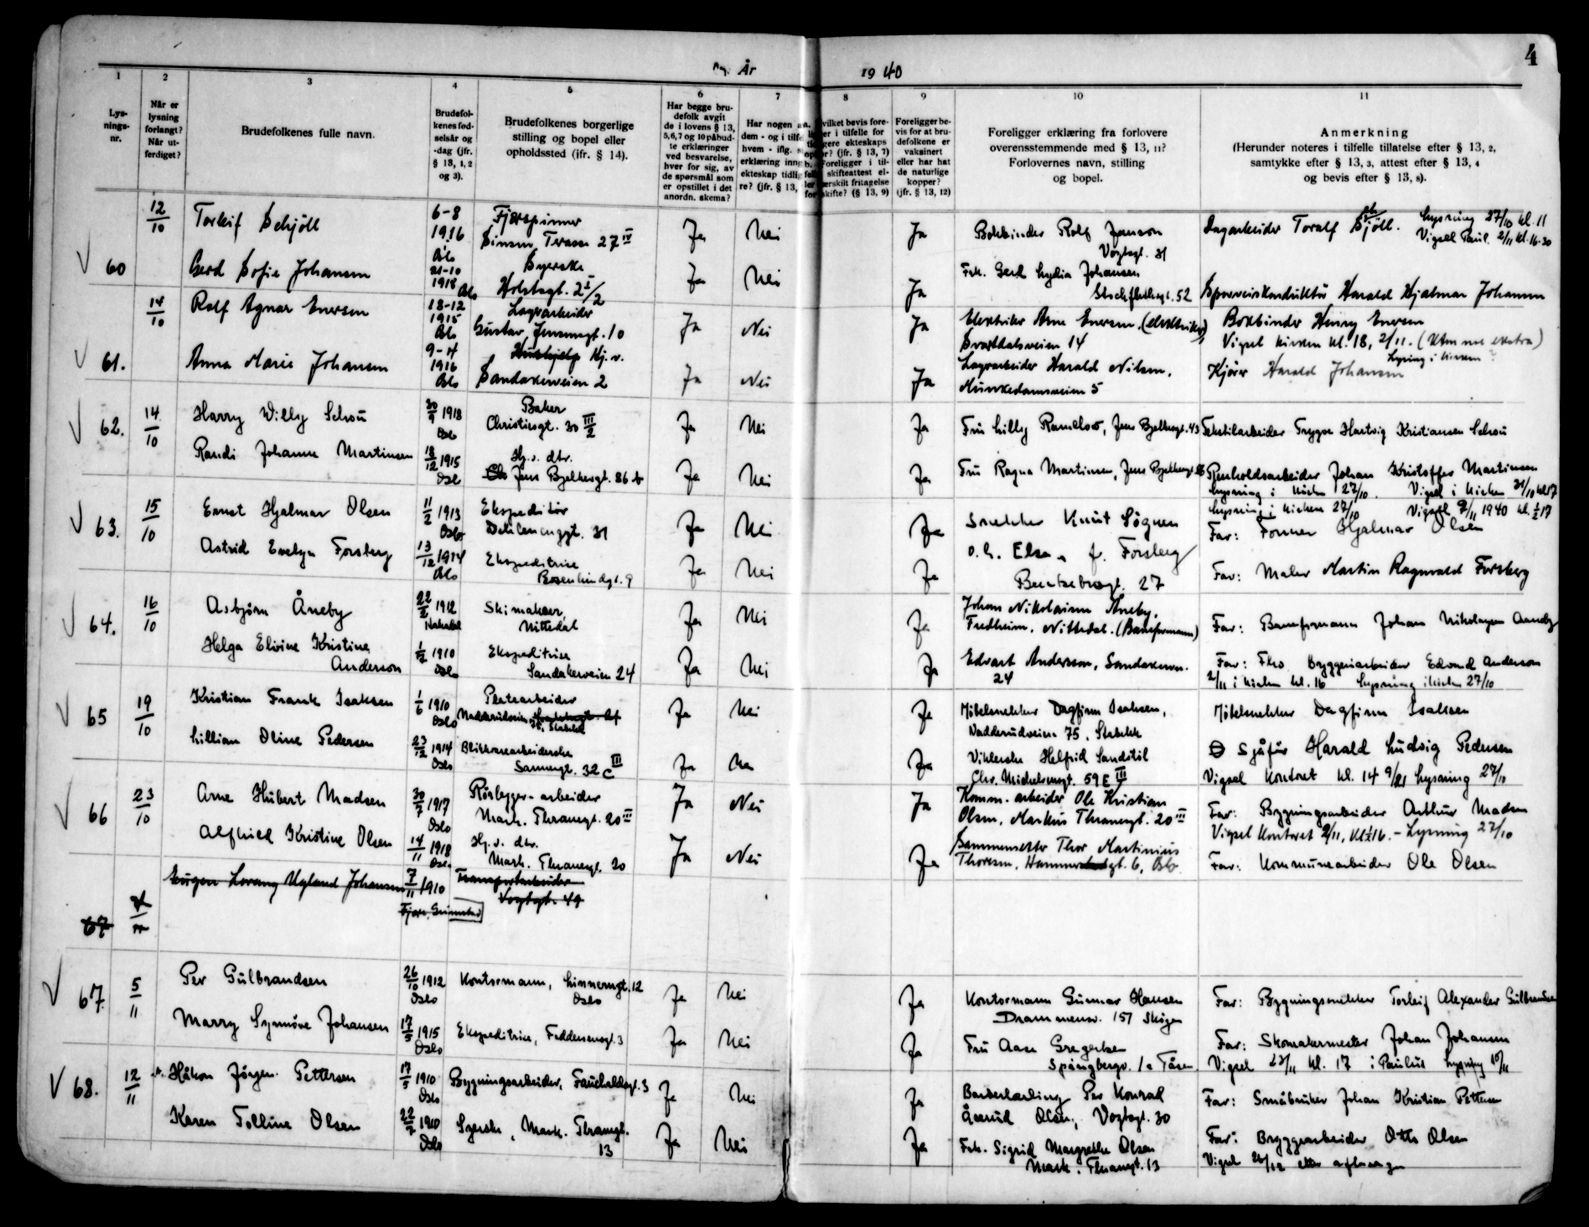 4
År 1940
1 2 3 4 5 6 7 8 9 10 11
Lys-
nings-
nr.
Når er
lysning
forlangt?
Når ut-
ferdiget?
Brudefolkenes fulle navn.
Brudefol-
kenes fød-
selsår og
-dag (jfr.
§ 13, 1, 2
og 3).
Brudefolkenes borgerlige
stilling og bopel eller
opholdssted (ifr. § 14).
Har begge bru-
defolk avgit
de i lovens § 13,
5,6,7 og 10 påbud-
te erklæringer
ved besvarelse,
hver for sig, av
de spørsmål som
er opstillet i det
anordn. skema?
Har nogen
dem - og i
hvem - iflg.
erklæring
ekteskap tidlig
re? (jfr. § 13,
hvilket bevis fore-
er i tilfelle for
gere ekteskaps
? (jfr. § 13, 7)
Foreligger i til-
skifteattest el-
særskilt fritagelse
skifte? (§ 13, 9)
Foreligger be-
vis for at bru-
defolkene er
vaksinert
eller har hat
de naturlige
kopper?
(jfr. § 13, 12)
Foreligger erklæring fra forlovere
overensstemmende med § 13, 11?
Forlovernes navn, stilling
og bopel.
Anmerkning
(Herunder noteres i tilfelle tillatelse efter § 13, 2,
samtykke efter § 13, 3, attest efter § 13, 4
og bevis efter § 13, 8).
60 12/10 Torleif Schjöll 6-8 1916 Oslo Sinsen Terasse 27 IV Ja Nei Ja Bokbinder Rolf Jansson Vogtsgt. 31
Lagarbeider Toralf Sjöll. Lysning 27/10 kl. 11
Vigsel Paul. 2/11 kl. 16.30
Gerd Sofie Johansen 21-10 1918 Oslo Syerske Holstsgt. 2 I/2 Ja Nei Ja Frk. Gerd Lydia Johansen
Stockflethsgt. 52 Sporveiskonduktör Harald Hjalmar Johansen
61. 14/10 Rolf Agnar Enersen 18-12 1915 Oslo Lagerarbeider Gustav Jensensgt. 10 Ja Nei Ja Elektriker Arne Enersen, (elektriker)
Svartdalsveien 14
Bokbinder Henry Enersen
Vigsel kirken kl. 18, 2/11. (Utm nus ekstra)
Lysning i kirken ?
Anna Marie Johansen 9-4 1916 Oslo Hj. v. Sandakerveien 2 Ja Nei Ja Lagerarbeider Harald Nilsen,
Munkedamsveien 5 Kjører Harald Johansen
62. 14/10 Harry Willy Schou 30/9 1918 Oslo Baker Christiesgt. 30 III/2 Ja Nei Ja Fru Lilly Ramdloo, Jens Bjelkesgt. 43 Tekstilarbeider Trygve Hartvig Kristiansen Schou
Randi Johanne Martinsen 18/12 1915 Oslo Hj. v. dtr. Jens Bjelkesgt. 86 b Ja Nei Ja Fru Ragna Martinsen, Jens Bjelkesgt. 86 Renholdsarbeider Johan Kristoffer Martinsen
Lysning i kirken 27/10. Vigsel i kirken 31/10 kl 17
63. 15/10 Ernst Hjalmar Olsen 11/2 1913 Oslo Ekspeditör Ja Nei Ja Snekker Knut Sögnen
Lysning i kirken 27/10 Vigsel 9/11 1940 kl. ½17
Far: Former Hjalmar Olsen
Astrid Evelyn Forsberg 13/12 1914 Oslo Ekspeditrise Rosenlundgt. 9 Ja Nei Ja o.h. Elsa f. Forsberg
27 Far: Maler Martin Ragnvald Forsberg
64. 16/10 Asbjörn Åneby 22/2 1912 Nittedal Skimaker, Nittedal Ja Nei Ja Johan Nikolaisen Aneby,
Fredheim, Nittedal. (Baneformann) Far: Baneformann Johan Nikolaysen Aaneby
Helga Elvine Kristine Anderson 1/12 1910 Oslo Ekspeditrise Sandakerveien 24 Ja Nei Ja Edvart Anderson, Sandakerv.
24 Far: Fhv. Bryggeriarbeider Edvard Anderson
2/11 i kirken kl. 16 Lysning i kirken 27/10
65 19/10 Kristian Frank Isaksen 1/6 1910 Oslo Platearbeider Ja Nei Ja Möbelsnekker Dagfinn Isaksen,
Nadderudveien 75, Stabekk Möbelsnekker Dagfinn Isaksen
Lillian Oline Pedersen 23/12 1914 Oslo Blikkvarearbeiderske Sannergt. 32 C III Ja Nei Ja Viklerske Helfrid Sandstil
Chr. Michelsensgt. 59 E III Sjåfør Harald Ludvig Pedersen
Vigsel Kontoret kl. 14 9/11 Lysning 27/10
66 23/10 Arne Hubert Madsen 30/7 1917 Oslo Rörlegger-arbeider Mark. Thranesgt. 20 III Ja Nei Ja Komm. arbeider Ole Kristian
Olsen, Markus Thranesgt. 20 III Far: Bygningsarbeider Arthur Madsen
Vigsel Kontoret 2/11, kl ½16. - Lysning 27/10
Alfhild Kristine Olsen 14/11 1918 Oslo Hj. v. dtr. Mark. Thranesgt. 20 Ja Nei Ja Bannemester Thor Martinius
Thoresen, Hammerstadgt. 6, Oslo Far: Kommunearbeider Ole Olsen
67 Eugen Lorang Ugland Johansen 7/11 1910 Fjære, Grimstad Transportarbeider Vogtsgt. 49
67. 5/11 Per Gulbrandsen 26/10 1912 Oslo Kontormann, 12 Oslo Ja Nei Ja Kontormann Gunnar Hansen
Drammensv. 157 Skøyen Far: Bygningssnekker Torleif Alexander Gulbrandsen
Marry Synnöve Johansen 17/5 1915 Oslo Ekspeditrise, Feddersensgt. 3 Ja Nei Ja Fru Aase Gregersen
Spångbergv. 1a Tåsen Far: Skomakermester Johan Johansen
Vigsel 23/11 kl. 17 i Paulus Lysning 10/11
68. 12/11 Håkon Jörgen Pettersen 17/5 1910 Oslo Bygningsarbeider, Fauchaldsgt. 3 Ja Nei Ja Per Konrad
Olsen, Vogtsgt. 30 Far: Småbruker Johan Kristian Pettersen
Karen Golline Olsen 22/2 1910 Oslo Syerske, Mark. Thranesgt. 13 Ja Nei Ja Frk. Sigrid Margrethe Olsen
Mark. Thranesgt. 13 Far: Bryggearbeider Otto Olsen
Vigsel